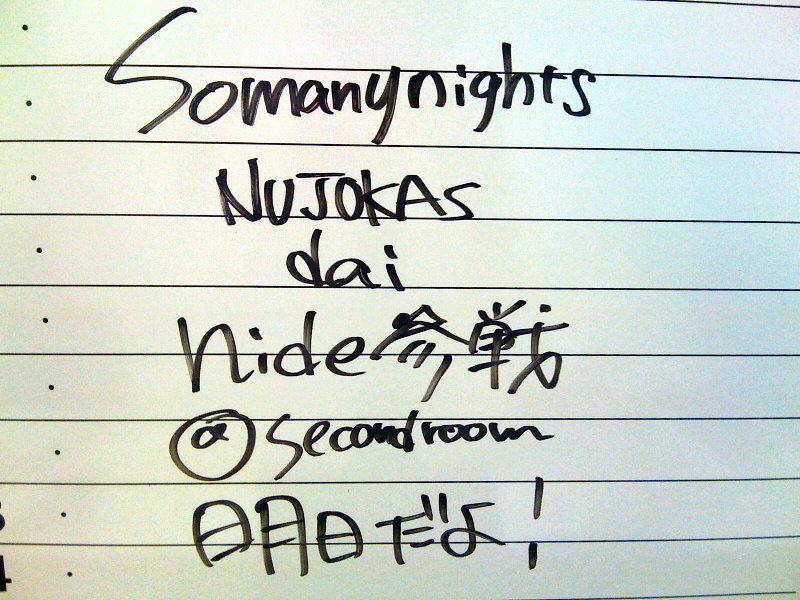 Somanynights
NUJOKAS
dai
hide参戦
@secondroom
明日だよ！